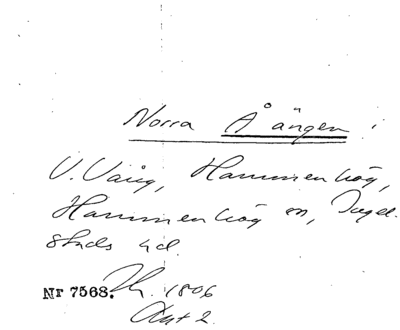 Norra Åängen i
V. Vång, Hammenhög,
Hammenhög sn, Ingel-
stads hd.
Nr 7568. 1806
Akt 2.